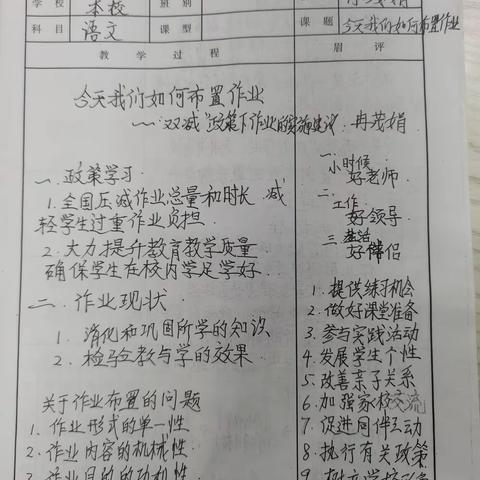 学校 本校 班别
科目 语文 课型 课题 今天我们如何布置作业
教学过程 眉评
今天我们如何布置作业
——"双减"政策下作业的实施建议:冉茂娟
一. 政策学习
1. 全国压减作业总量和时长, 减
轻学生过重作业负担.
2. 大力提升教育教学质量
确保学生在校内学足学好.
二. 作业现状
1. 消化和巩固所学的知识
2. 检验教与学的效果
关于作业布置的问题
1. 作业形式的单一性
2. 作业内容的机械性
3. 作业目的的功利性
一. 小时候
好老师
二. 工作
好领导
三. 生活
好伴侣
1. 提供练习机会
2. 做好课堂准备
3. 参与实践活动
4. 发展学生个性
5. 改善亲子关系
6. 加强家校交流
7. 促进同伴互动
8. 执行有关政策
9.